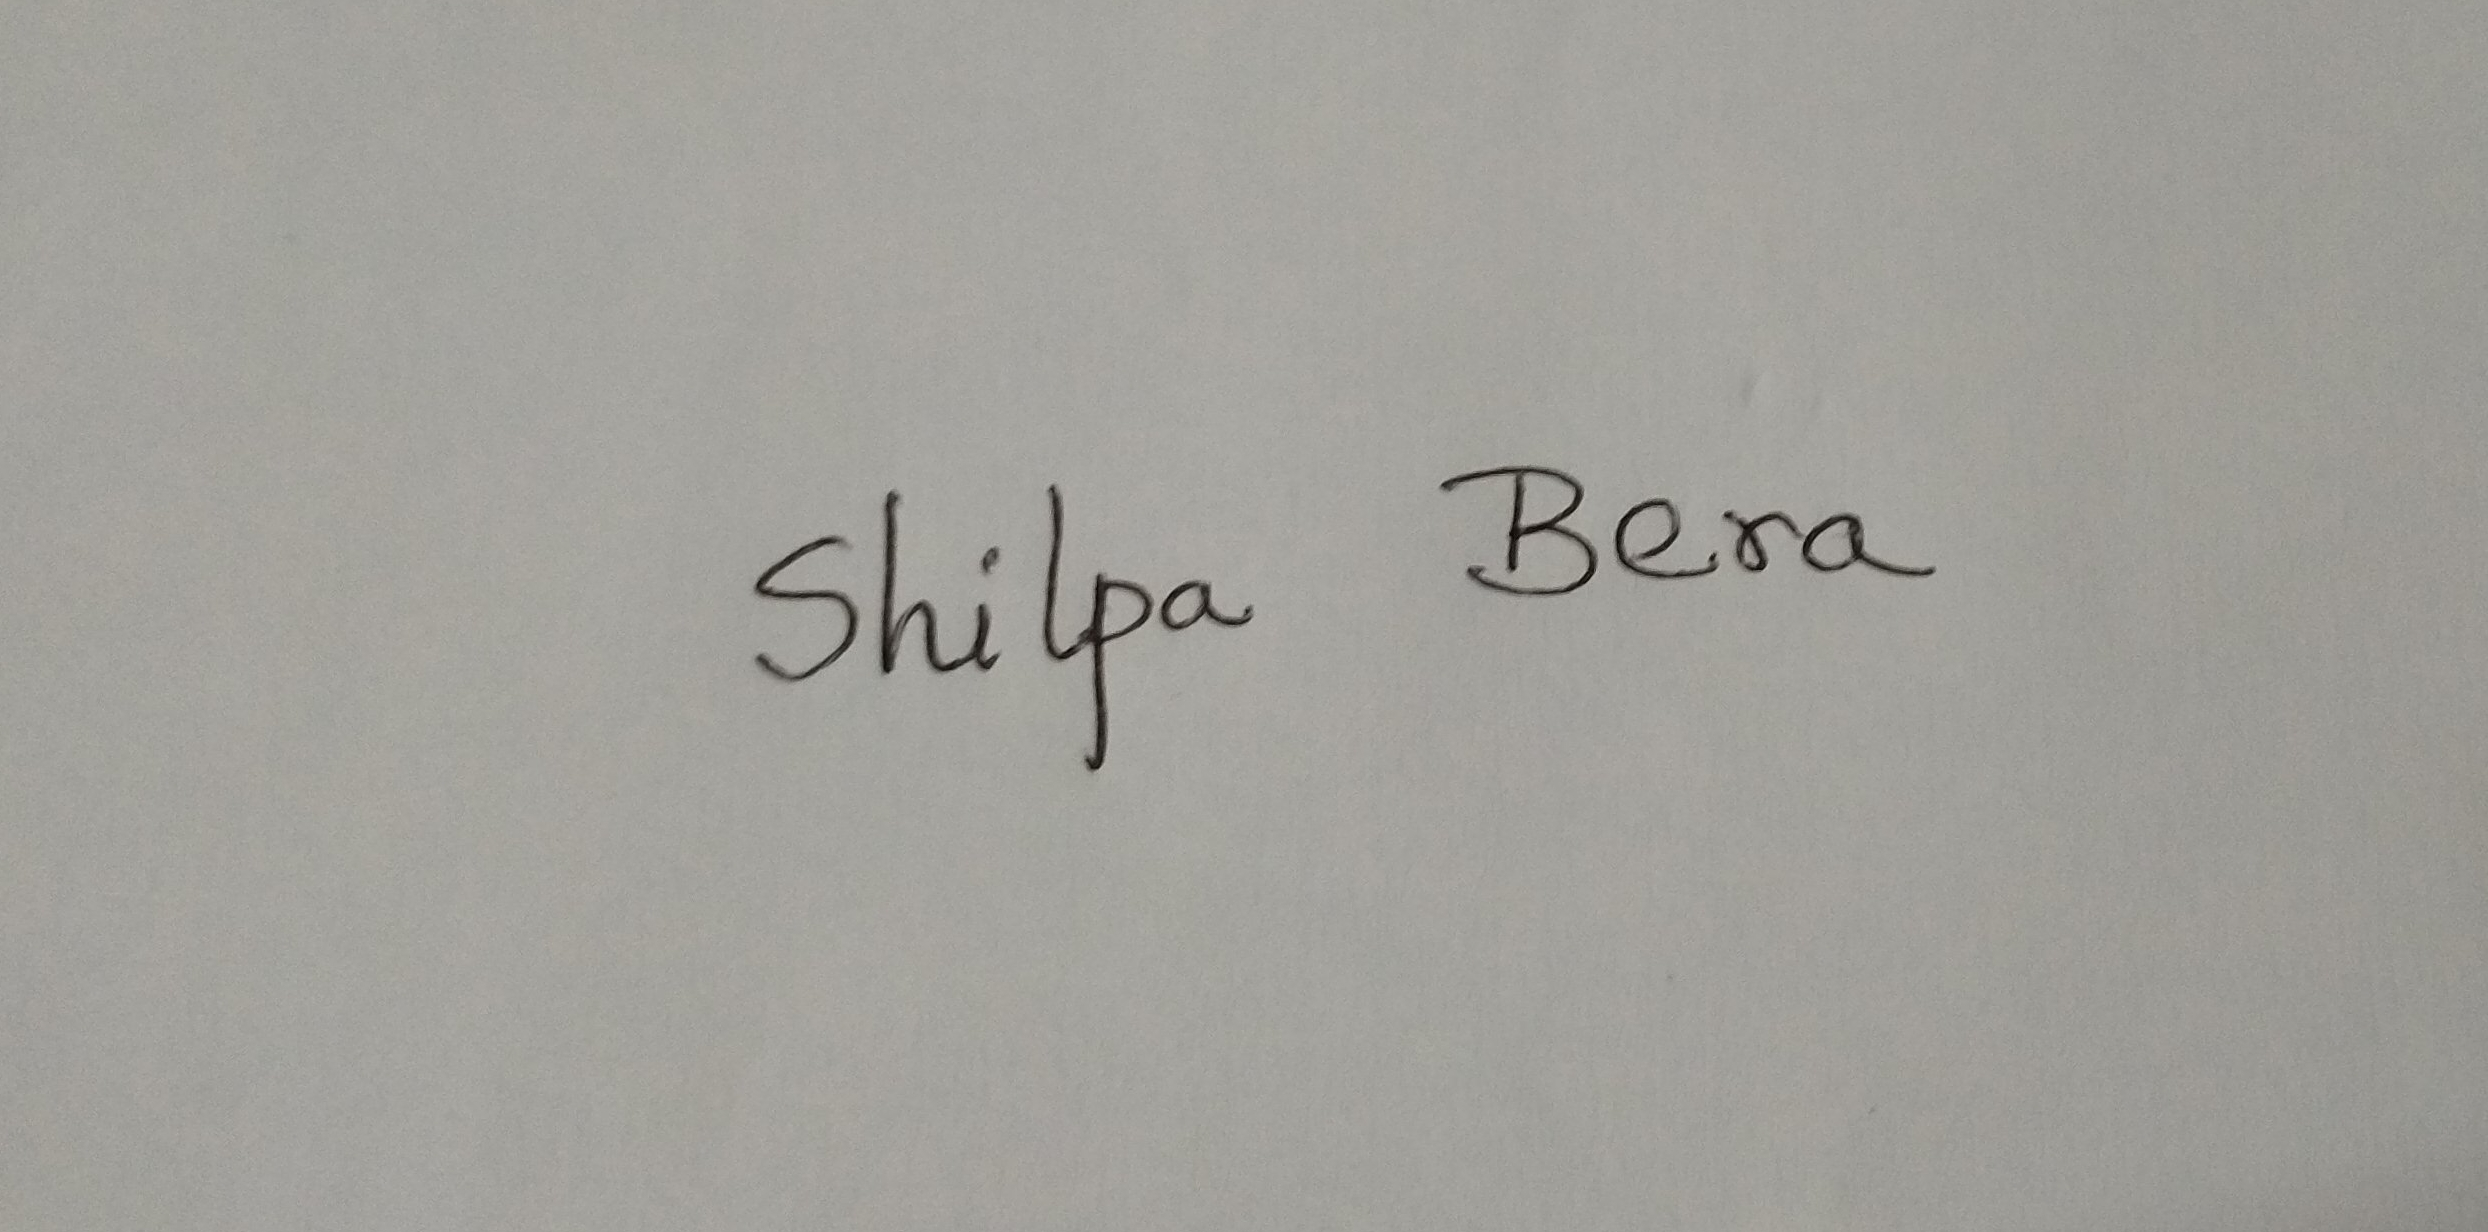 Shilpa Bera